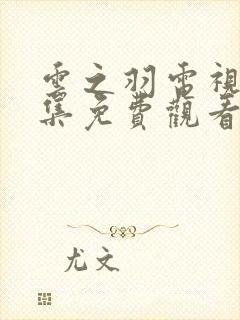 雲之羽電視
集免費觀看
尤文